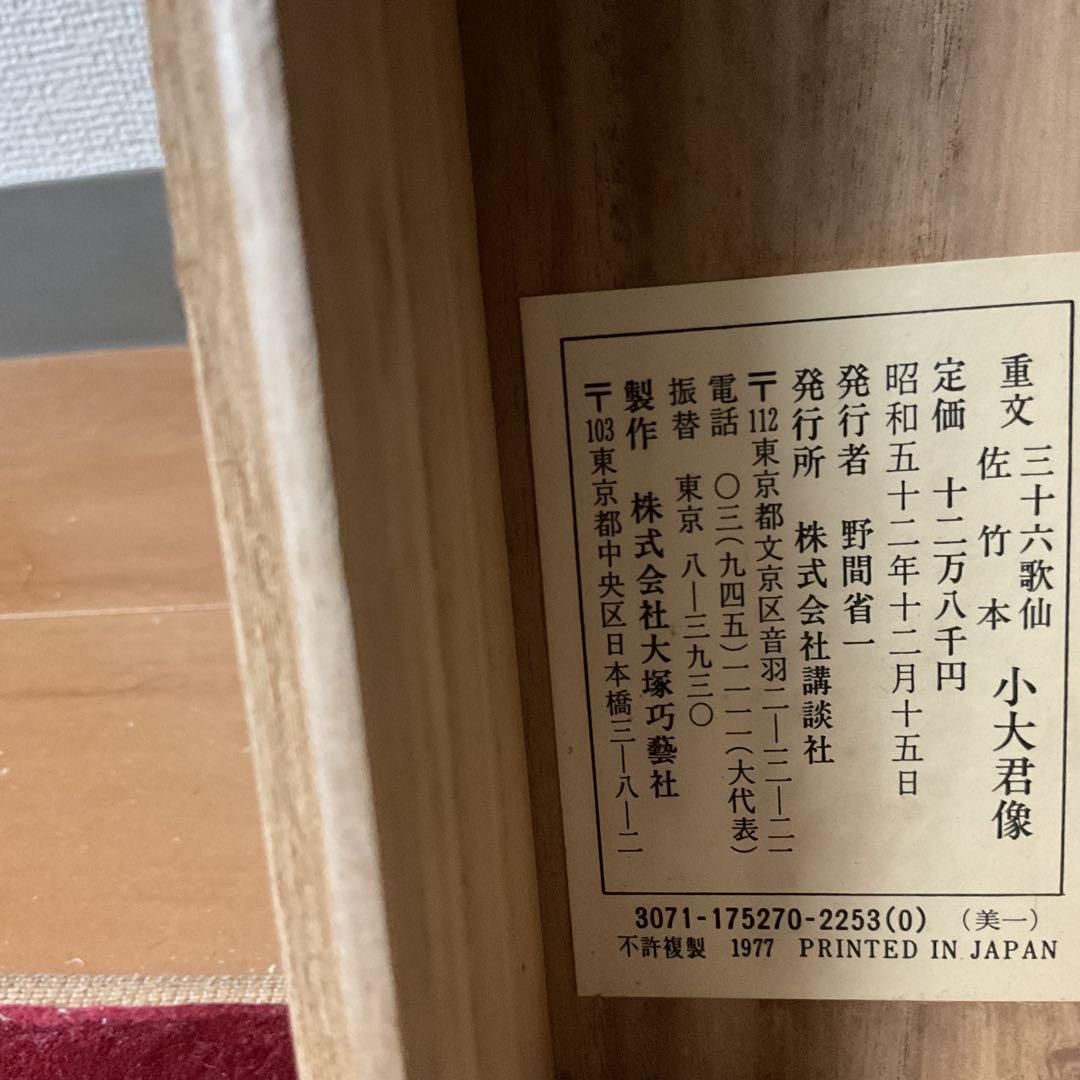 重文 三十六歌仙 佐竹本 小大君像
定価 十二万八千円
昭和五十二年十二月十五日
発行者 野間省一
発行所 株式会社講談社
〒112東京都文京区音羽二―一二―二一
電話 〇三(九四五)一一一一(大代表)
振替 東京 八―三九三〇
製作 株式会社大塚巧藝社
〒103東京都中央区日本橋三―八―二
3071-175270-2253(0) (美一)
不許複製 1977 PRINTED IN JAPAN